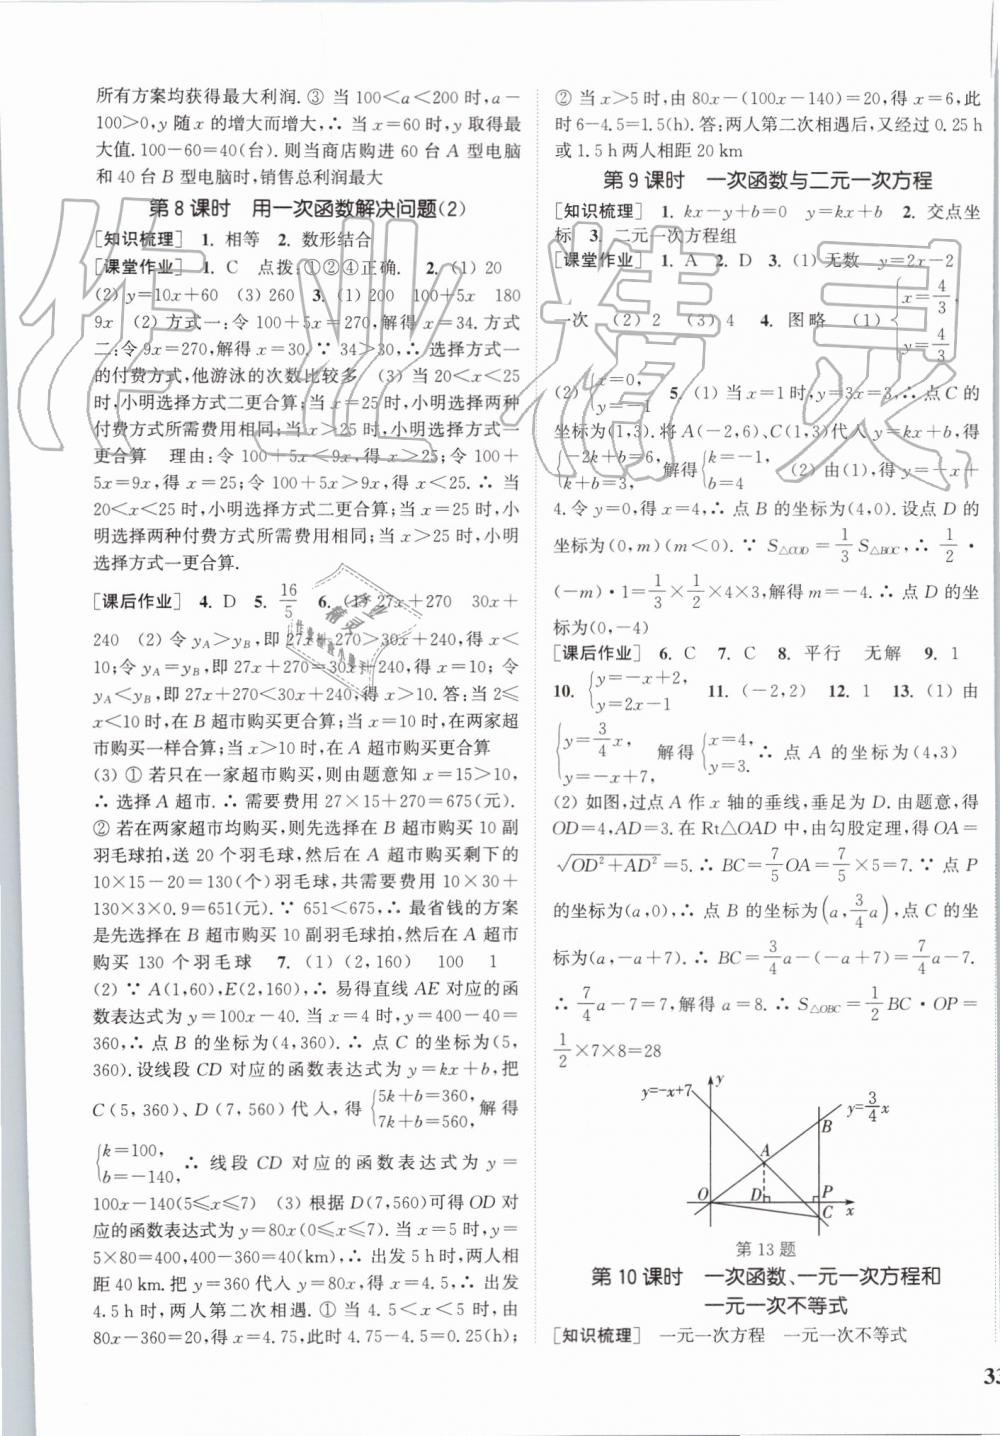 所有方案均获得最大利润. ③ 当 100<a<200 时,a-
100>0,y 随 x 的增大而增大,∴ 当 x=60 时,y 取得最
大值. 100-60=40(台). 则当商店购进 60 台 A 型电脑
和 40 台 B 型电脑时,销售总利润最大
第 8 课时 用一次函数解决问题(2)
[知识梳理] 1. 相等 2. 数形结合
[课堂作业] 1. C 点拨:①②④正确. 2. (1) 20
(2) y=10x+60 (3) 260 3. (1) 200 100+5x 180
9x (2) 方式一:令 100+5x=270,解得 x=34. 方式
二:令 9x=270,解得 x=30. ∵ 34>30,∴ 选择方式一
的付费方式,他游泳的次数比较多 (3) 当 20<x<25
时,小明选择方式二更合算;当 x=25 时,小明选择两种
付费方式所需费用相同;当 x>25 时,小明选择方式一
更合算 理由:令 100+5x<9x,得 x>25. 令 100+
5x=9x,得 x=25. 令 100+5x>9x,得 x<25. ∴ 当
20<x<25 时,小明选择方式二更合算;当 x=25 时,小
明选择两种付费方式所需费用相同;当 x>25 时,小明
选择方式一更合算.
[课后作业] 4. D 5. 16/5 6. (1) 27x+270 30x+
240 (2) 令 yA>yB,即 27x+270>30x+240,得 x<
10;令 yA=yB,即 27x+270=30x+240,得 x=10;令
yA<yB,即 27x+270<30x+240,得 x>10. 答:当 2≤
x<10 时,在 B 超市购买更合算;当 x=10 时,在两家超
市购买一样合算;当 x>10 时,在 A 超市购买更合算
(3) ① 若只在一家超市购买,由题意知 x=15>10,
∴ 选择 A 超市. ∴ 需要费用 27×15+270=675(元).
② 若在两家超市均购买,则先选择在 B 超市购买 10 副
羽毛球拍,送 20 个羽毛球,然后在 A 超市购买剩下的
10×15-20=130(个)羽毛球,共需要费用 10×30+
130×3×0.9=651(元). ∵ 651<675,∴ 最省钱的方案
是先选择在 B 超市购买 10 副羽毛球拍,然后在 A 超市
购买 130 个羽毛球 7. (1) (2,160) 100 1
(2) ∵ A(1,60),E(2,160),∴ 易得直线 AE 对应的函
数表达式为 y=100x-40. 当 x=4 时,y=400-40=
360,∴ 点 B 的坐标为(4,360). ∴ 点 C 的坐标为(5,
360). 设线段 CD 对应的函数表达式为 y=kx+b,把
C(5,360)、D(7,560)代入,得 {5k+b=360, 7k+b=560, 解得
{k=100, b=-140, ∴ 线段 CD 对应的函数表达式为 y=
100x-140(5≤x≤7) (3) 根据 D(7,560)可得 OD 对
应的函数表达式为 y=80x(0≤x≤7). 当 x=5 时,y=
5×80=400,400-360=40(km),∴ 出发 5 h 时,两人相
距 40 km. 把 y=360 代入 y=80x,得 x=4.5,∴ 出发
4.5 h 时,两人第二次相遇. ① 当 4.5<x<5 时,由
80x-360=20,得 x=4.75,此时 4.75-4.5=0.25(h);
② 当 x>5 时,由 80x-(100x-140)=20,得 x=6,此
时 6-4.5=1.5(h). 答:两人第二次相遇后,又经过 0.25 h
或 1.5 h 两人相距 20 km
第 9 课时 一次函数与二元一次方程
[知识梳理] 1. kx-y+b=0 y=kx+b 2. 交点坐
标 3. 二元一次方程组
[课堂作业] 1. A 2. D 3. (1) 无数 y=2x-2
一次 (2) 2 (3) 4 4. 图略 (1) {x=4/3, y=4/3
(2) {x=0, y=-1 5. (1) 当 x=1 时,y=3x=3,∴ 点 C 的
坐标为(1,3). 将 A(-2,6)、C(1,3)代入 y=kx+b,得
{-2k+b=6, k+b=3, 解得 {k=-1, b=4 (2) 由(1),得 y=-x+
4. 令 y=0,得 x=4,∴ 点 B 的坐标为(4,0). 设点 D 的
坐标为(0,m)(m<0). ∵ S△COD=1/3 S△BOC,∴ 1/2·
(-m)·1=1/3×1/2×4×3,解得 m=-4. ∴ 点 D 的坐
标为(0,-4)
[课后作业] 6. C 7. C 8. 平行 无解 9. 1
10. {y=-x+2, y=2x-1 11. (-2,2) 12. 1 13. (1) 由
{y=3/4 x, y=-x+7, 解得 {x=4, y=3. ∴ 点 A 的坐标为(4,3)
(2) 如图,过点 A 作 x 轴的垂线,垂足为 D. 由题意,得
OD=4,AD=3. 在 Rt△OAD 中,由勾股定理,得 OA=
√(OD²+AD²)=5. ∴ BC=7/5 OA=7/5×5=7. ∵ 点 P
的坐标为(a,0),∴ 点 B 的坐标为(a,3/4 a),点 C 的坐
标为(a,-a+7). ∴ BC=3/4 a-(-a+7)=7/4 a-7.
∴ 7/4 a-7=7,解得 a=8. ∴ S△OBC=1/2 BC·OP=
1/2×7×8=28
y=-x+7 y y=3/4 x
B
A
O D P x
C
第 13 题
第 10 课时 一次函数、一元一次方程和
一元一次不等式
[知识梳理] 一元一次方程 一元一次不等式
33
作业精灵